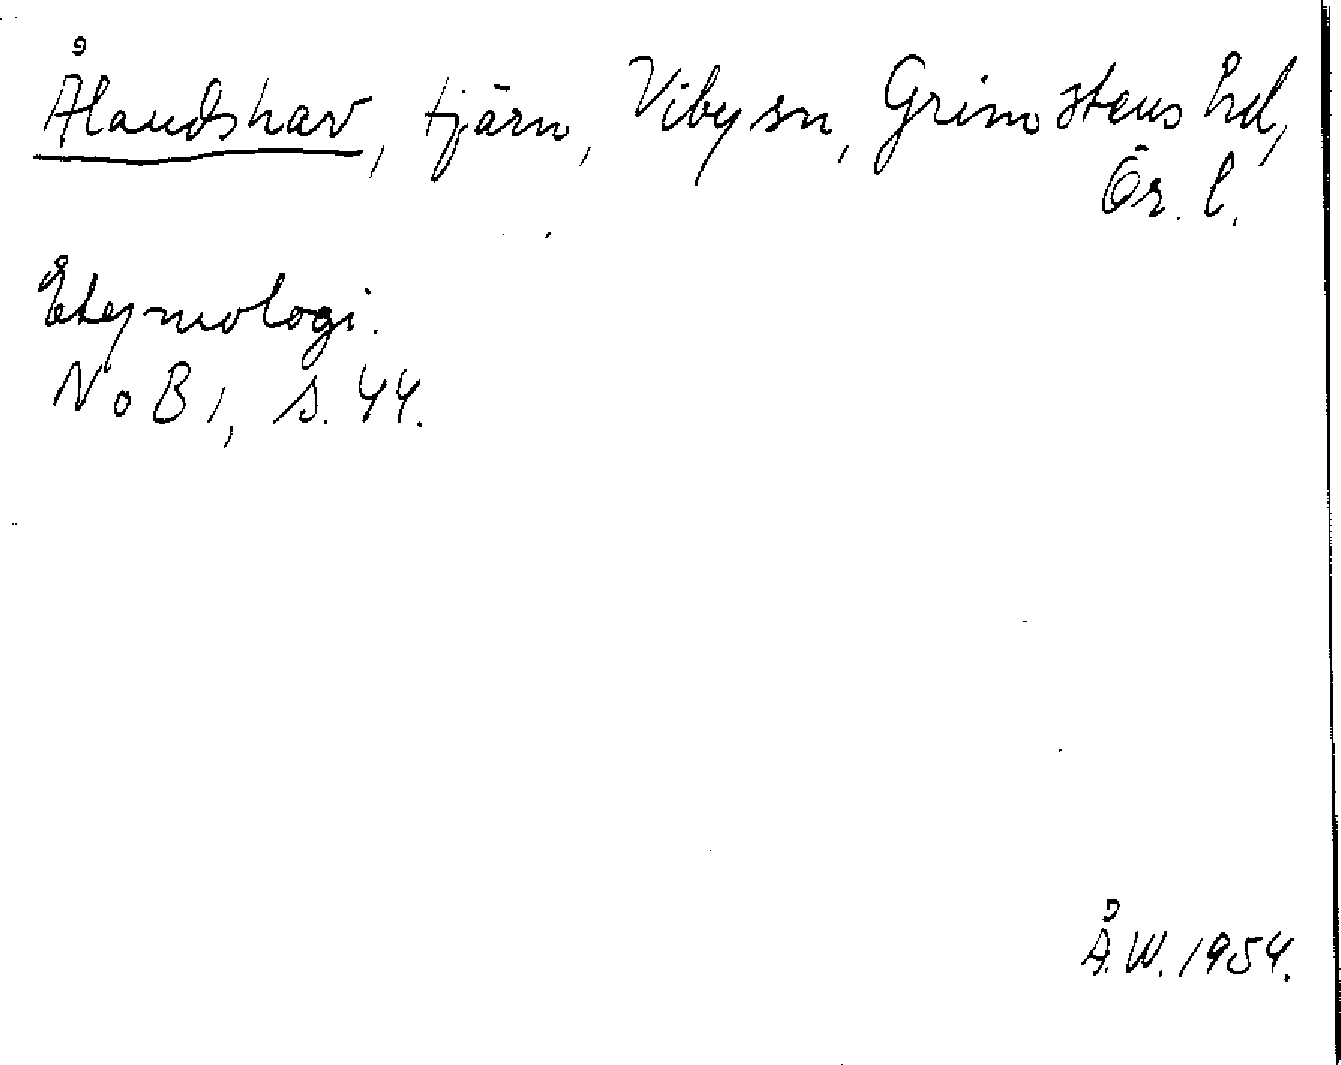 Ålandshav, tjärn, Viby sn, Grimstens hd,
Ör. l.
Etymologi.
NoB 1, s. 44.
Å.W. 1954.